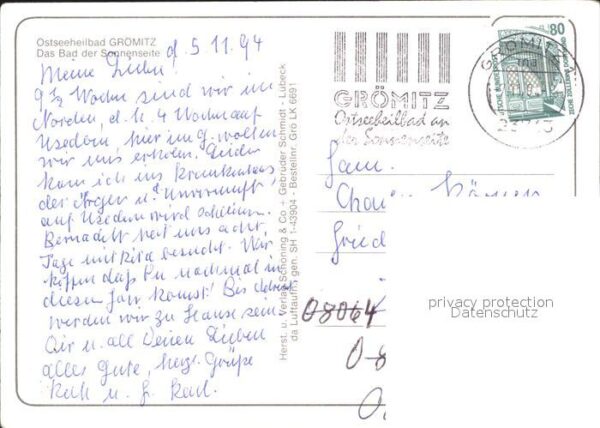 Ostseeheilbad GRÖMITZ
Das Bad der Sonnenseite
d. 5 11.94
Meine Lieben!
9 ½ Wochen sind wir im
Norden, d. h. 4 Wochen auf
Usedom, hier in g. wollen
wir uns erholen. Leider
kam ich ins Krankenhaus,
der Magen u.
auf Usedom wird
Bernadett hat uns acht
Tage mit besucht. Wir
hoffen daß Du nochmal in
diesem Jahr kommst! Bis
werden wir zu Hause sein.
Dir u. all Deinen Lieben
alles Gute, herzl. Grüße
Kath u. Karl.
Herst. u. Verlag Schöning & Co · Gebrüder Schmidt · Lübeck
da Luftaufn. gen. SH 1-43904 · Bestellnr. Grö LK 6691
GRÖMITZ
Ostseeheilbad an
der Sonnenseite
GRÖMITZ
80
DEUTSCHE BUNDESPOST
Fam.
Fried
08064
0-8
privacy protection
Datenschutz